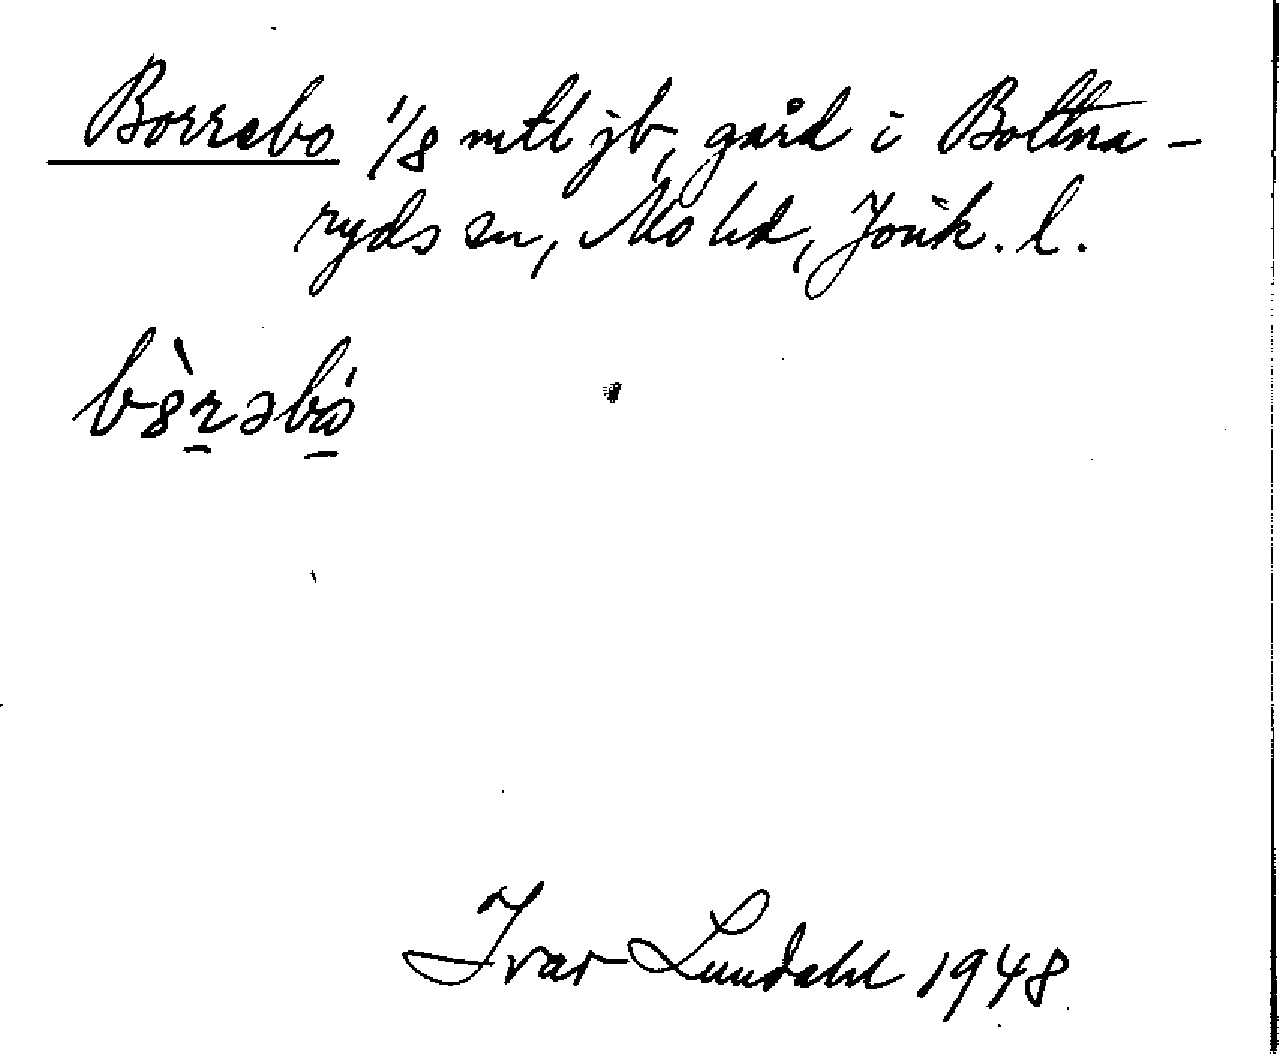 Borrebo 1/8 mtl jb, gård i Bottna-
ryds sn, Mo hd, Jönk. l.
bòrəbó
Ivar Lundahl 1948